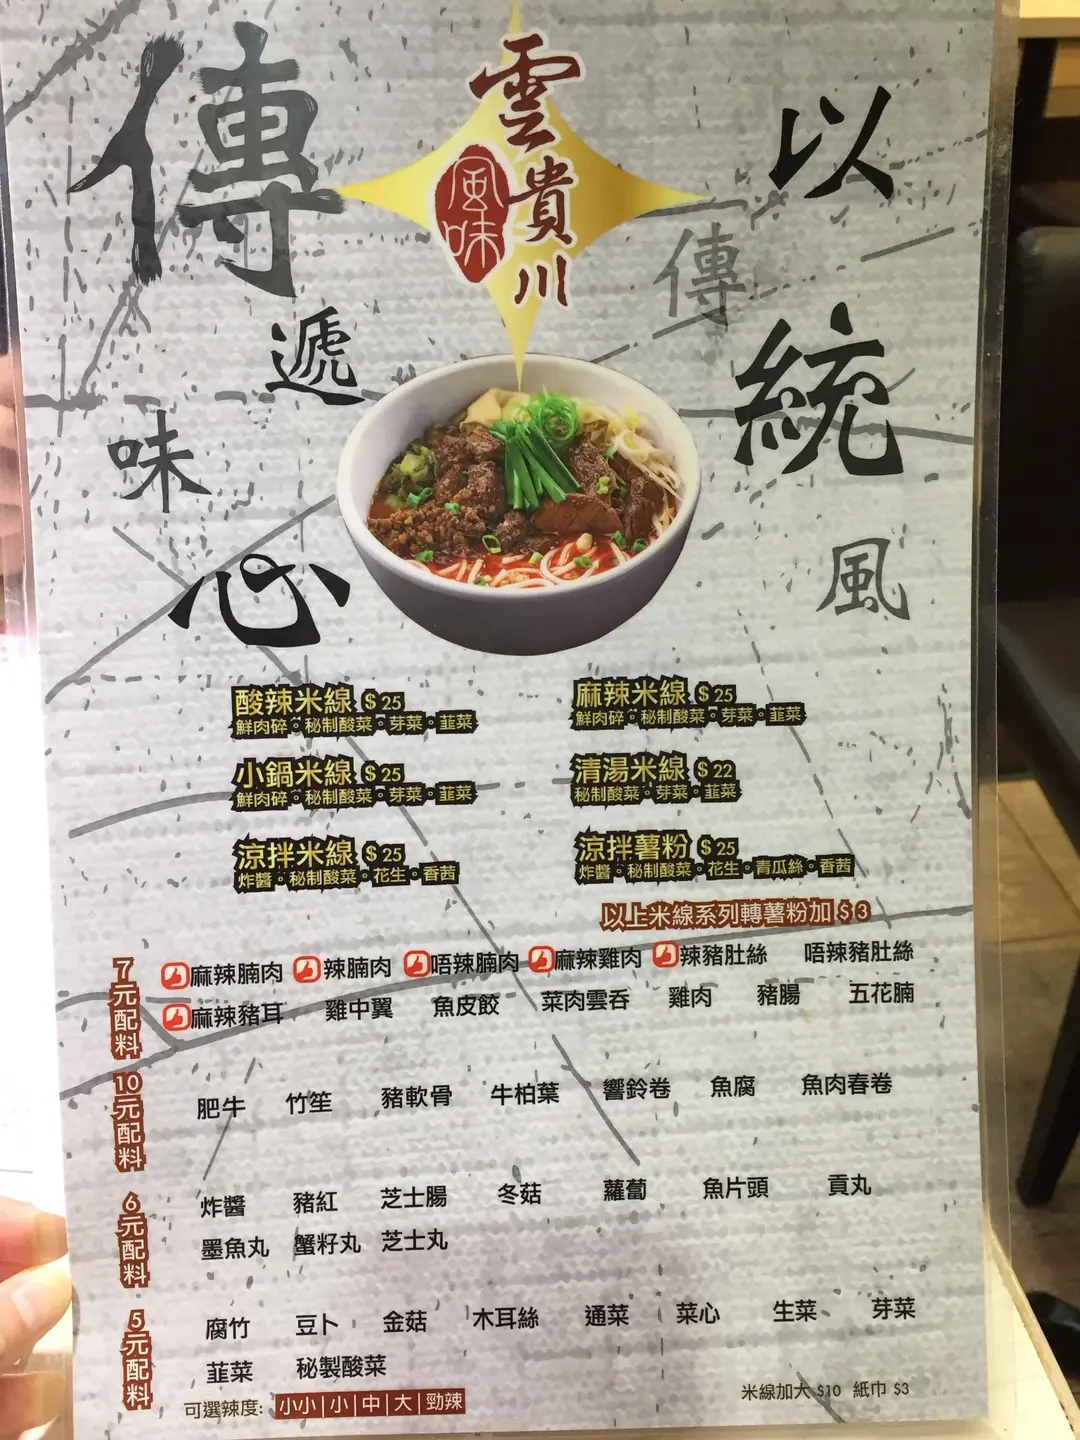 傳
遞
味
心
雲貴川
風味
以
傳
統
風
酸辣米線 $25
鮮肉碎。秘制酸菜。芽菜。韮菜
麻辣米線 $25
鮮肉碎。秘制酸菜。芽菜。韮菜
小鍋米線 $25
鮮肉碎。秘制酸菜。芽菜。韮菜
清湯米線 $22
秘制酸菜。芽菜。韮菜
涼拌米線 $25
炸醬。秘制酸菜。花生。香茜
涼拌薯粉 $25
炸醬。秘制酸菜。花生。青瓜絲。香茜
以上米線系列轉薯粉加 $3
7元配料
麻辣腩肉 辣腩肉 唔辣腩肉 麻辣雞肉 辣豬肚絲 唔辣豬肚絲
麻辣豬耳 雞中翼 魚皮餃 菜肉雲吞 雞肉 豬腸 五花腩
10元配料
肥牛 竹笙 豬軟骨 牛柏葉 響鈴卷 魚腐 魚肉春卷
6元配料
炸醬 豬紅 芝士腸 冬菇 蘿蔔 魚片頭 貢丸
墨魚丸 蟹籽丸 芝士丸
5元配料
腐竹 豆卜 金菇 木耳絲 通菜 菜心 生菜 芽菜
韮菜 秘製酸菜
可選辣度: 小小|小|中|大|勁辣
米線加大 $10 紙巾 $3